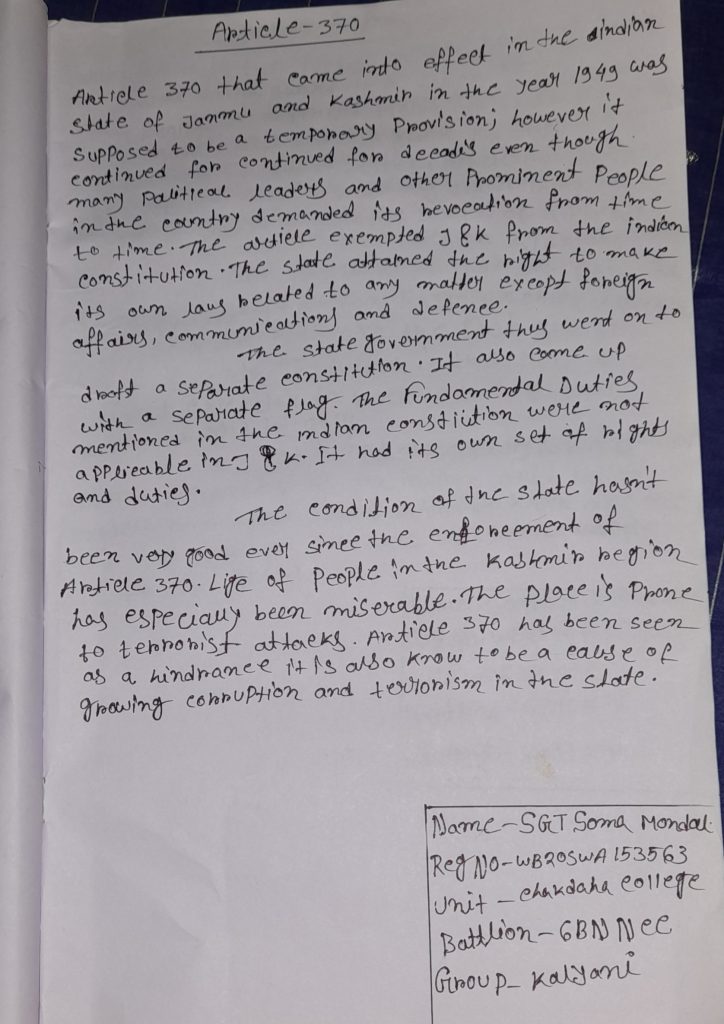 Article-370
Article 370 that came into effect in the indian
state of Janmu and Kashmir in the year 1949 was
supposed to be a temporary Provision; however it
continued for continued for decades even though
many Political leaders and other Prominent People
in the country demanded its revocation from time
to time. The article exempted J & K from the indian
constitution. The state attained the right to make
its own laws related to any matter except foreign
affairs, communications and defence.
The state government thus went on to
draft a separate constitution. It also came up
with a separate flag. The Fundamental Duties
mentioned in the indian constiution were not
applicable in J & K. It had its own set of rights
and duties.
The condition of the state hasn't
been very good ever since the enforcement of
Article 370. Life of People in the Kashmir region
has especially been miserable. The place is Prone
to terrorist attacks. Article 370 has been seen
as a hindrance it is also know to be a cause of
growing corruption and terrorism in the state.
Name-SGT Soma Mondal
Reg No-WB20SWA153563
Unit - Chakdaha College
Battlion-6BN Ncc
Group- Kalyani